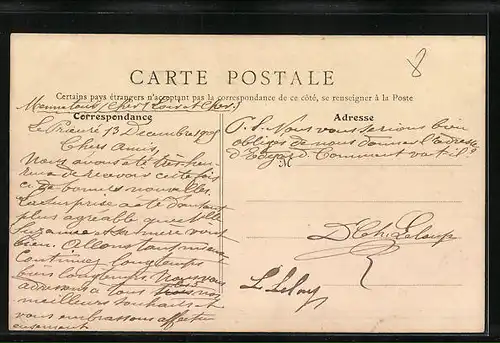 8
CARTE POSTALE
Certains pays étrangers n'acceptant pas la correspondance de ce côté, se renseigner à la Poste
Mennetou s/Cher (Loir et Cher)
Correspondance
Le Prieuré 13 Décembre
Chers Amis,
Nous avons été très heu
reux de recevoir cette fois
ci de bonnes nouvelles.
La surprise a été d'autant
plus agréable que Mlle
Suzanne et sa mère vont
bien. Allons tant mieux
Continuez longtemps
bien longtemps. Nous vous
adressons à tous nos
meilleurs souhaits et
vous embrassons affectu
eusement
Adresse
P. S. Nous vous serions bien
obligés de nous donner l'adresse
d'Edgard. Comment va-t-il?
M
Dr Ch. Leloup
L. Leloup